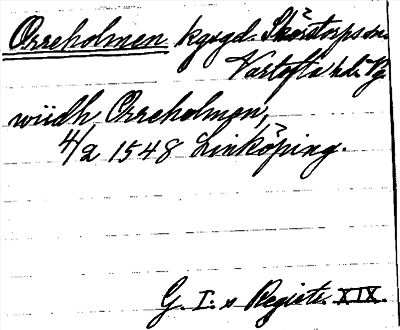 Orreholmen kgsgd. Skörstorps sn.
Vartofta hd. Vg
widh Orreholmen,
4/2 1548 Linköping.
G. I:s Registr. XIX.